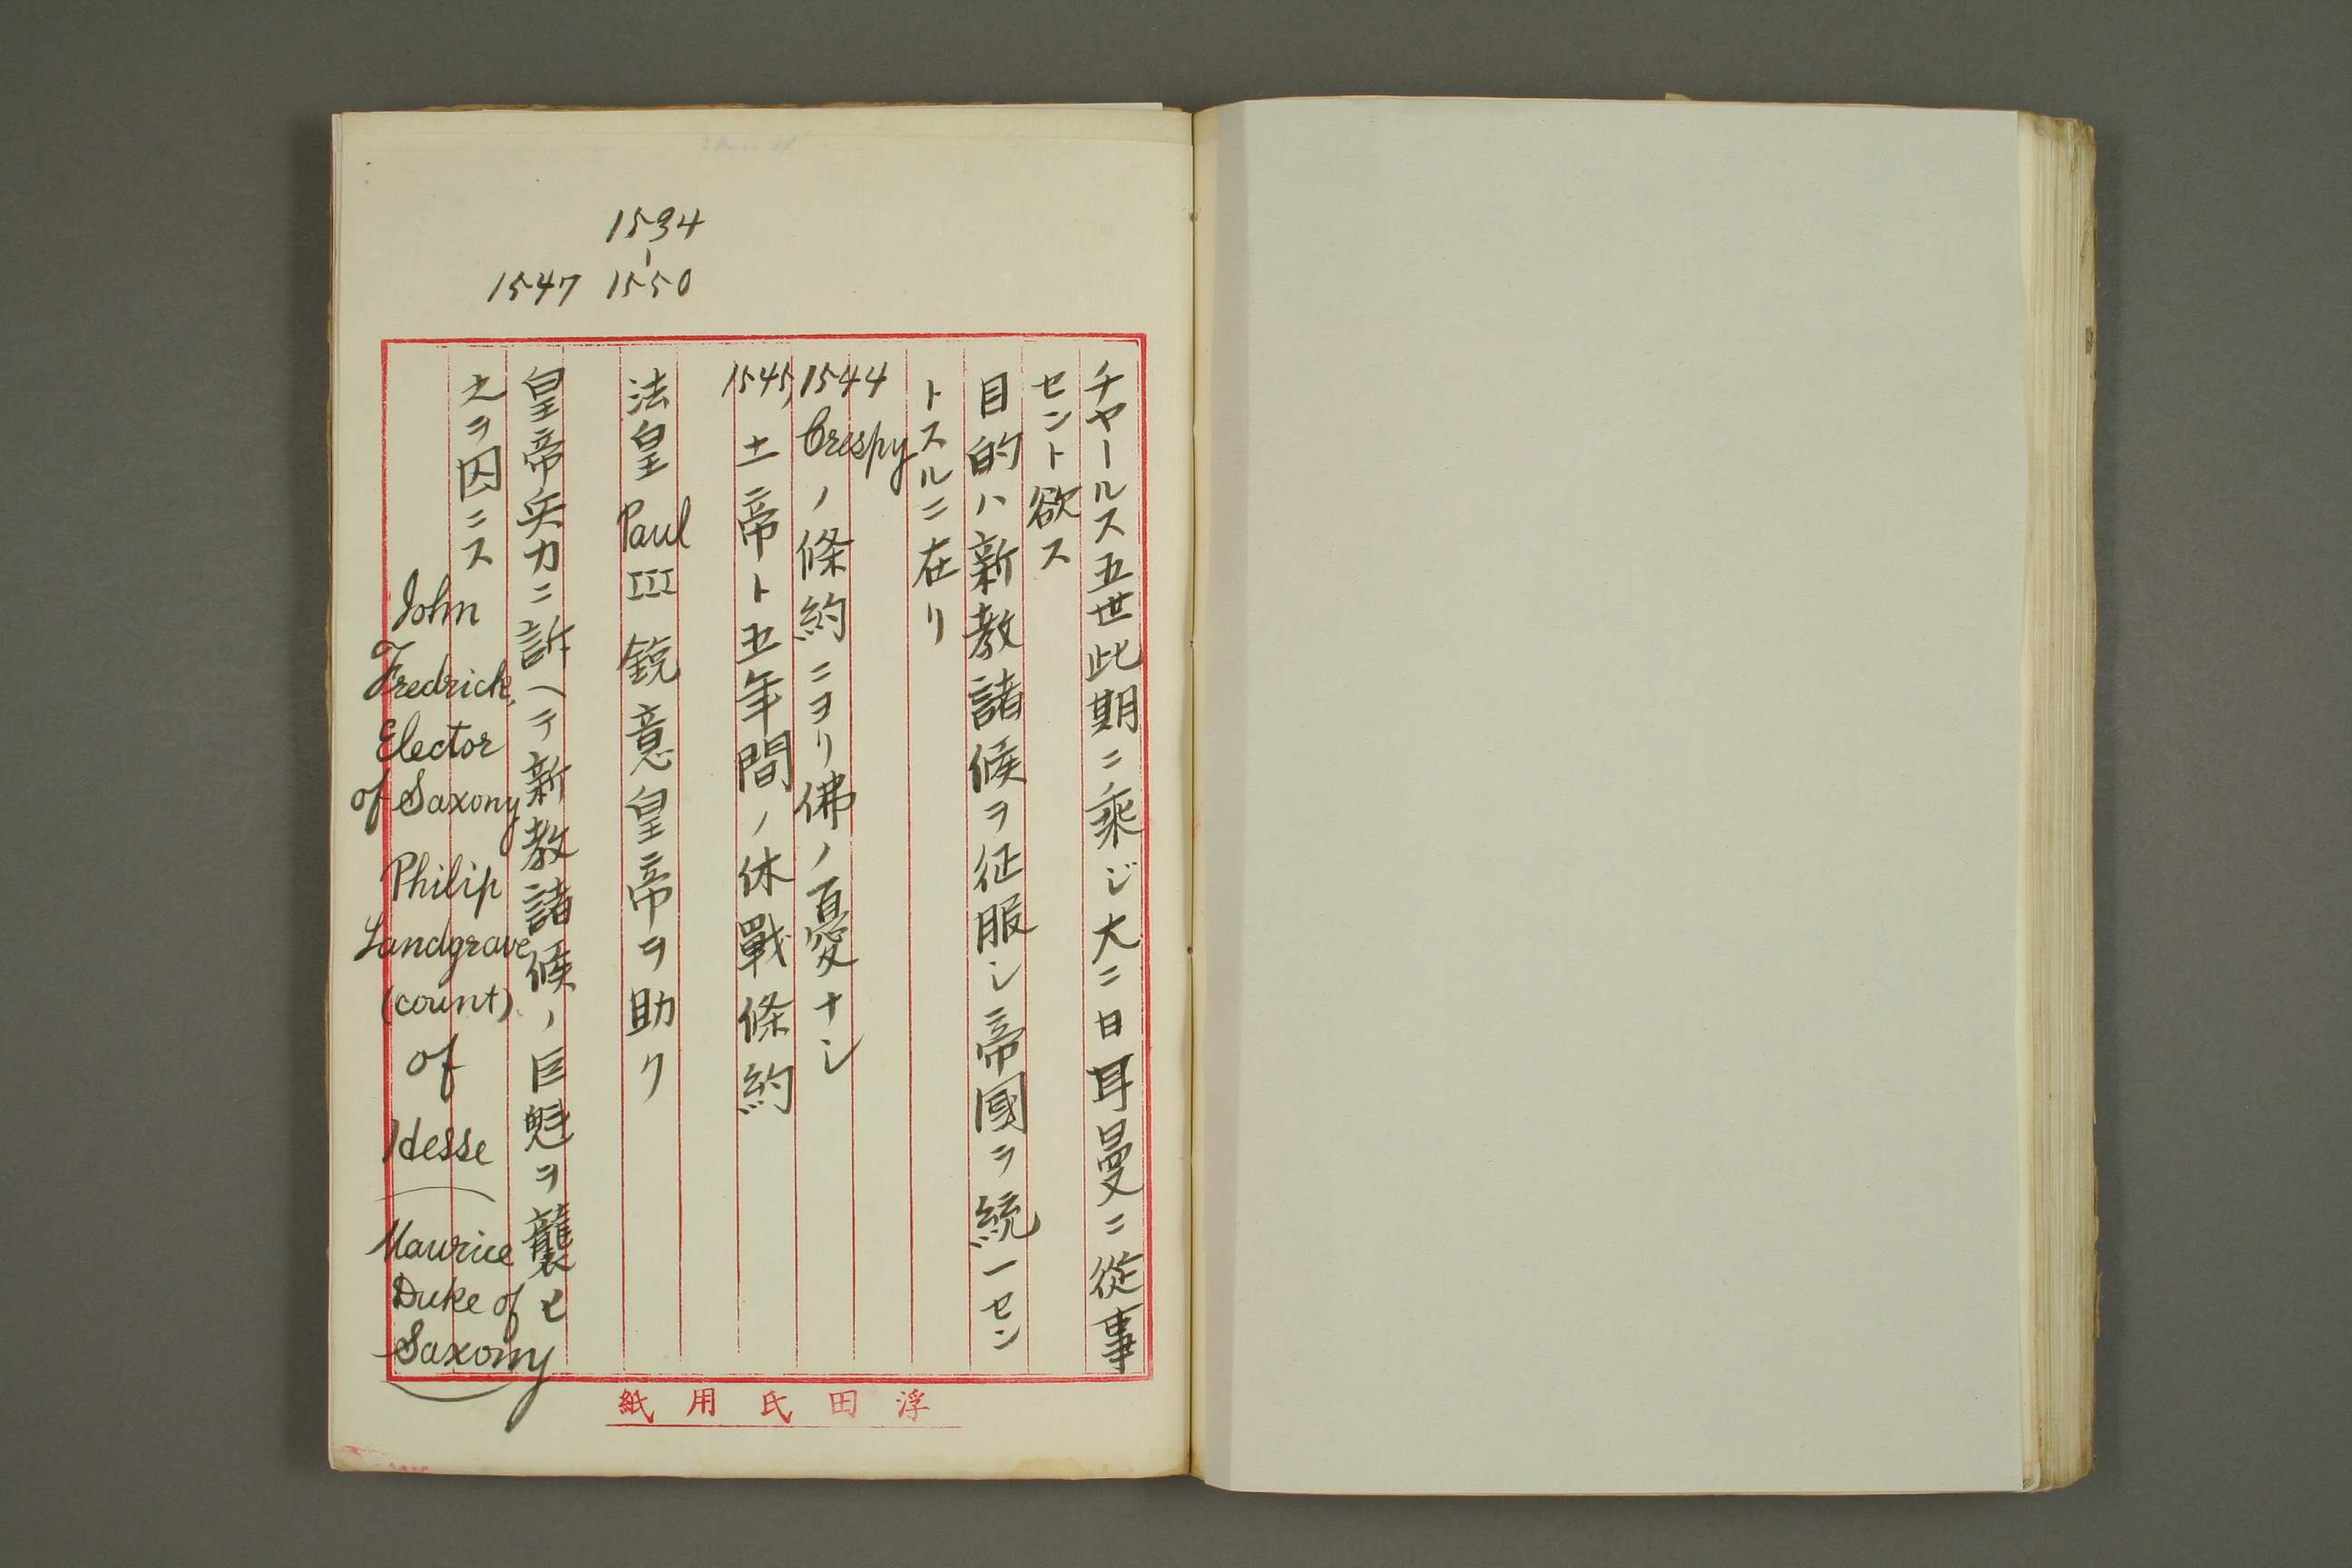 チャールス五世此期ニ乘ジ大ニ日耳曼ニ從事
セント欲ス
目的ハ新教諸候ヲ征服シ帝國ヲ統一セン
トスルニ在リ
1544 Crespyノ條約ニヨリ佛ノ憂ナシ
1545, 土帝ト五年間ノ休戰條約
1534-1550
法皇 Paul III 鋭意皇帝ヲ助ク
1547
皇帝兵力ニ訴ヘテ新教諸候ノ巨魁ヲ襲ヒ
之ヲ囚ニス
John
Fredrick,
Elector
of Saxony
Philip
Landgrave
(count)
of
Hesse
(Maurice
Duke of
Saxony)
浮田氏用紙